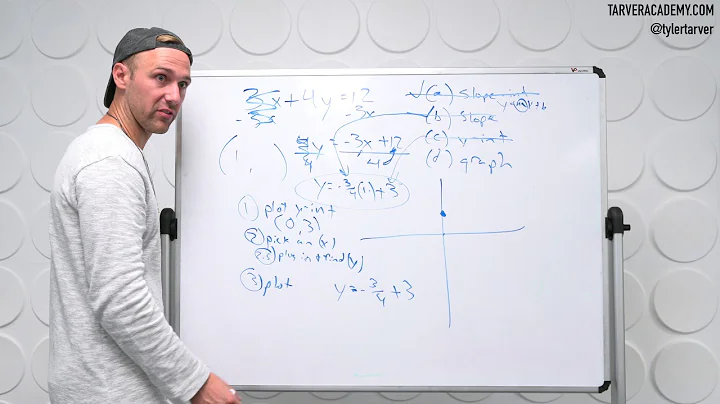 TARVERACADEMY.COM
@tylertarver
3x + 4y = 12
-3x -3x
4y = -3x + 12
4 4
y = -3/4(1) + 3
( 1, )
(a) slope-int
y = mx + b
(b) slope
(c) y-int
(d) graph
① plot y-int
(0,3)
② pick an (x)
②.5 plug in + find (y)
③ plot
y = -3/4 + 3